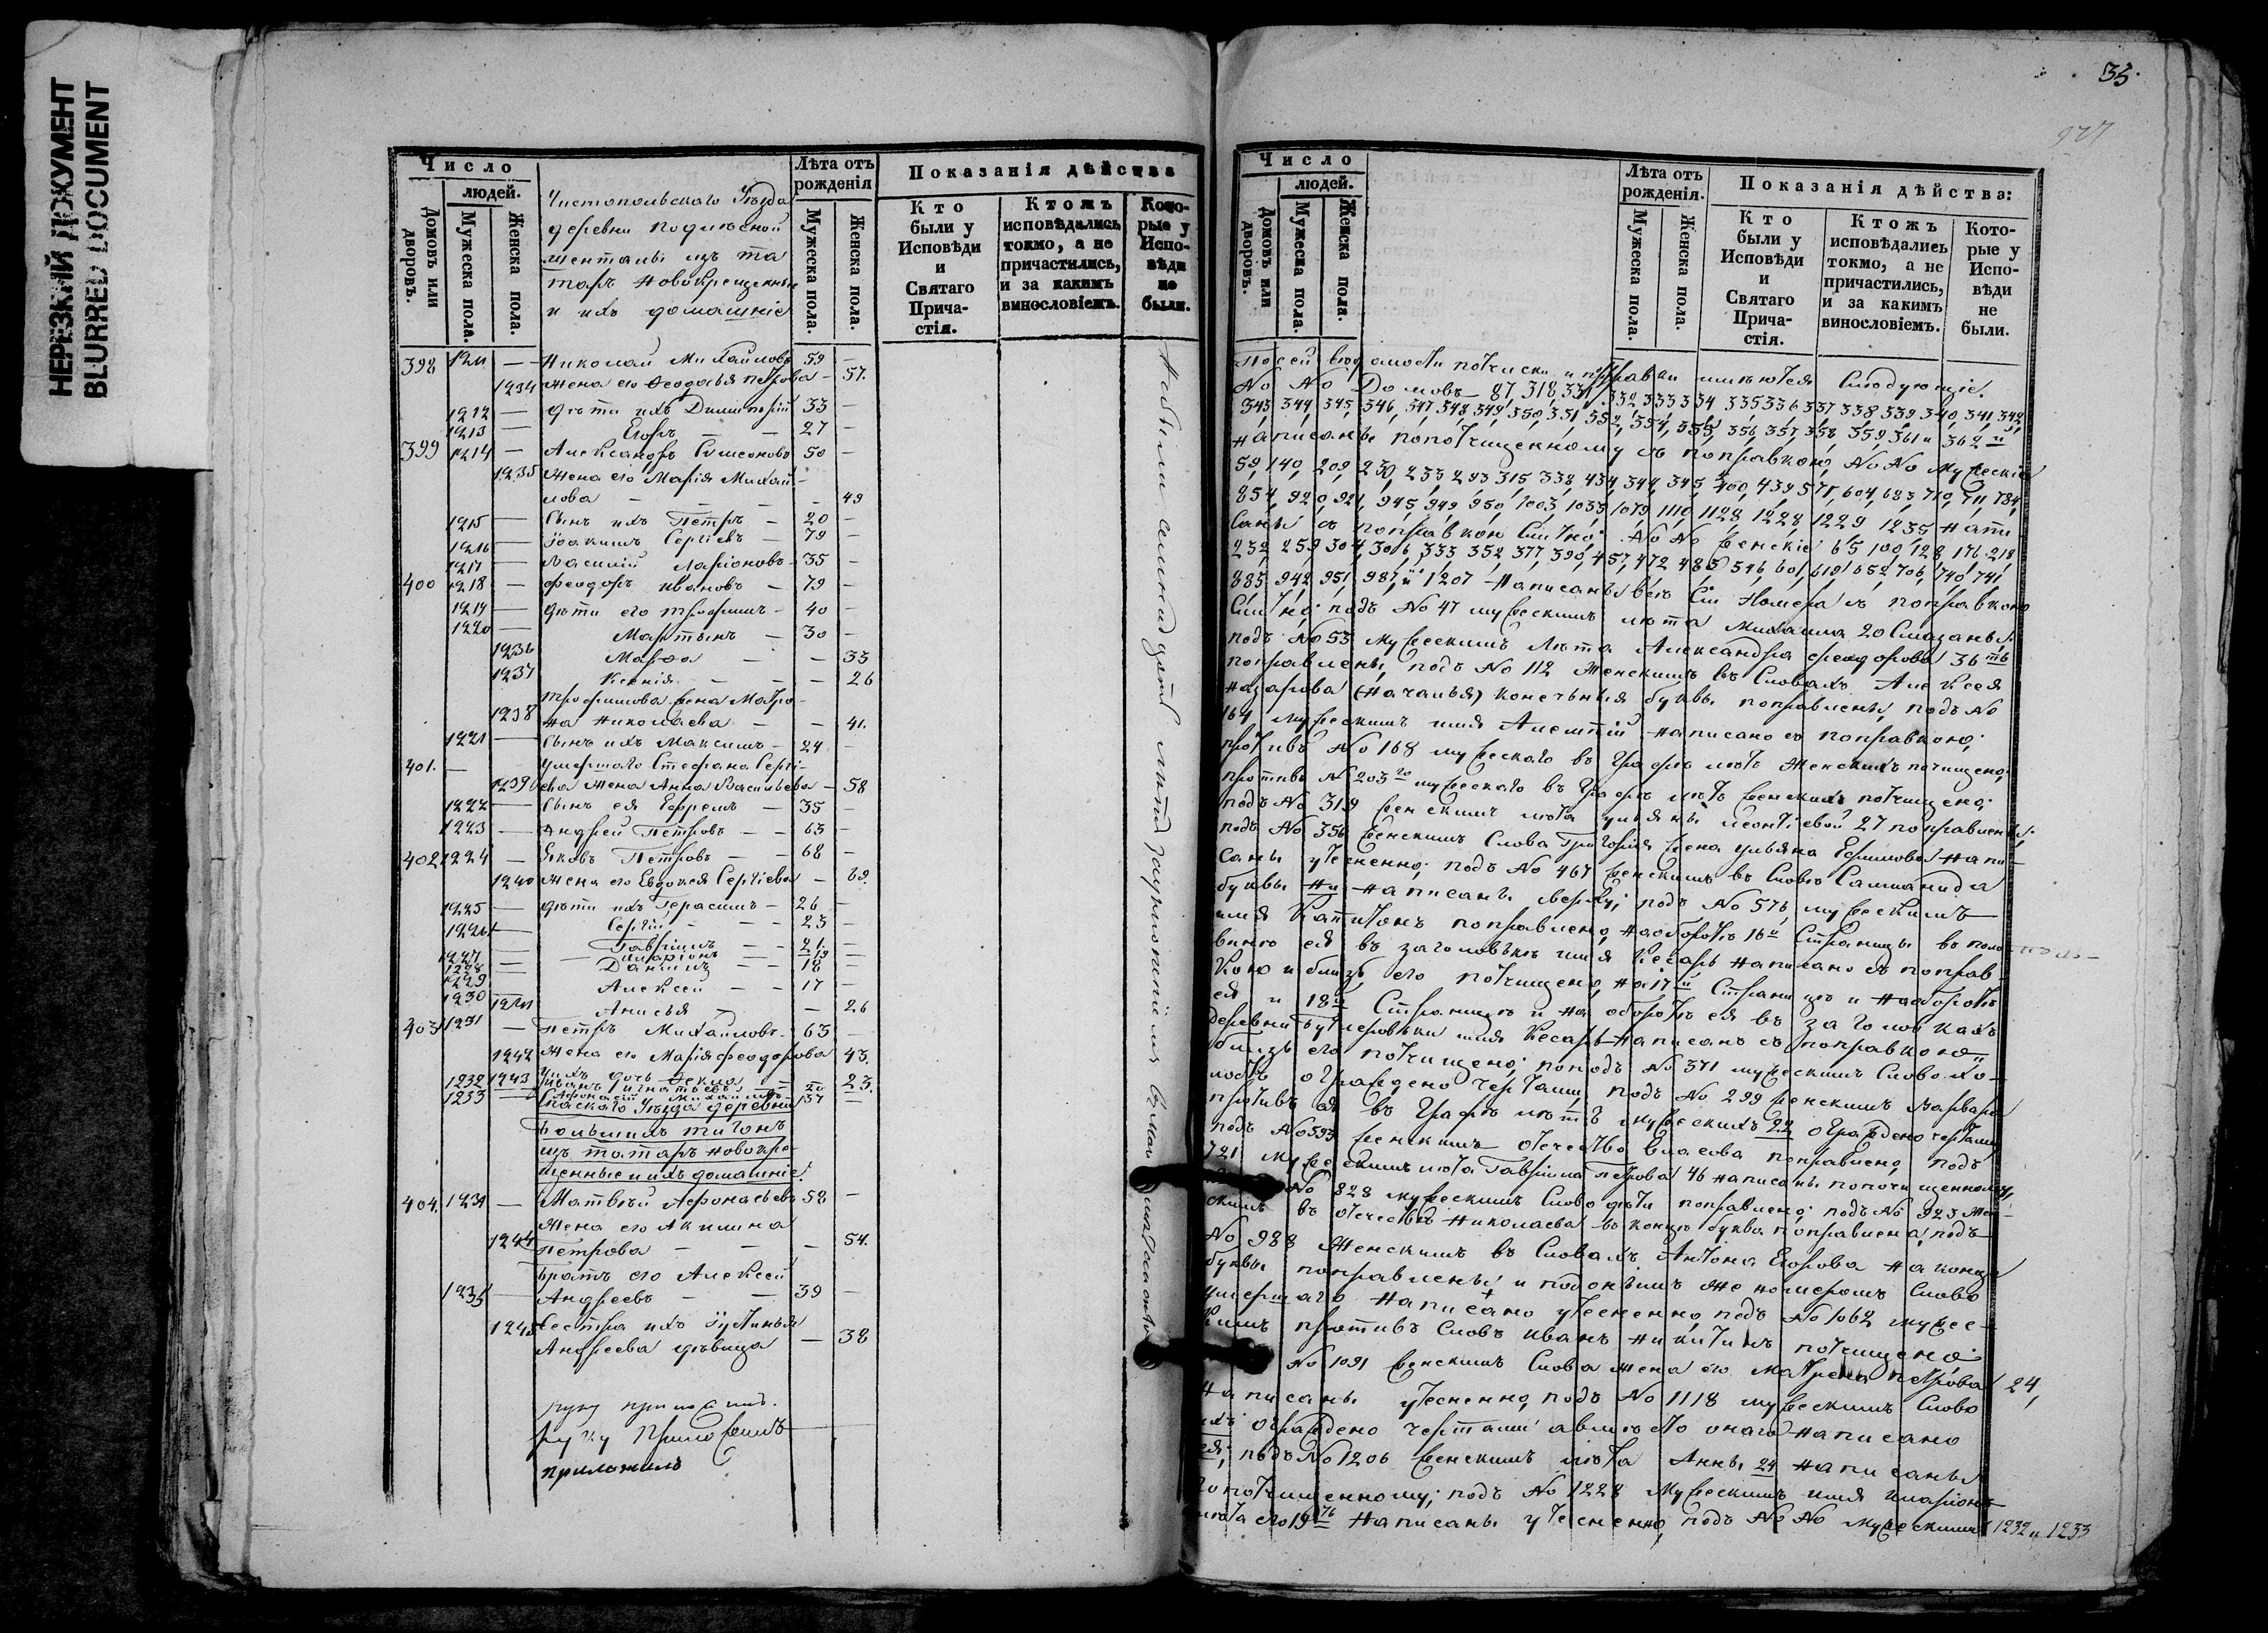 НЕРЕЗКИЙ ДОКУМЕНТ
BLURRED DOCUMENT
Число
людей.
Домовъ или дворовъ.
Мужеска пола.
Женска пола.
Чистопольскаго Уѣзда
деревни Подлѣсной
Шенталы изъ та
таръ новокрещенные
и ихъ домашніе
Лѣта отъ рожденія
Мужеска пола.
Женска пола.
Показанія дѣйства
Кто были у Исповѣди и Святаго Прича-стія.
Ктожъ исповѣдались токмо, а не причастились, и за какимъ винословіемъ.
Кото-рые у Испо-вѣди не были.
398 1211 — Николай Михайловъ 59 —
1234 жена его Ѳеодосья Петрова — 57.
1212 — дѣти ихъ Димитрій 33 —
1213 — Егоръ — — 27 —
399 1214 — Александръ Симеоновъ 50 —
1235 Жена его Марія Михай-
лова — — — 49
1215 — Сынъ ихъ Петръ — 20 —
1216 — Іоакимъ Сергѣевъ — 79 —
1217 — Василій Ларіоновъ — 35 —
400 1218 — Феодоръ Ивановъ — 79 —
1219 — дѣти его Трофимъ — 40 —
1220 — Мартынъ — 30 —
1236 Марѳа — — 33
1237 Ксенія — — 26
Трофимова жена Матро-
1238 на Николаева — — 41.
1221 — Сынъ ихъ Максимъ — 24 —
401. — Умершаго Стефана Сергі-
1239 ева жена Анна Васильева — 58
1222 — Сынъ ея Ефремъ — 35 —
1223 — Андрей Петровъ — — 63 —
402 1224 — Яковъ Петровъ — — 68 —
1240 жена его Евдокея Сергіева — 69.
1225 — дѣти ихъ Герасимъ — 26 —
1226 — Сергій — — 23 —
— Гавріилъ — — 21 —
1227 — Иларіонъ — 19 —
1228 — Даніилъ — — 18 —
1229 — Алексей — — 17 —
1230 1241 Анисья — — 26
403 1231 — Петръ Михайловъ — 63 —
1242 Жена его Марія Феодорова 43.
1243 Ихъ дочь Фекла — — 23.
1232 Иванъ Игнатьевъ — 20
1233 — Афонасій Михайловъ 37 —
Спаскаго Уѣзда деревни
Большихъ Тиганъ
изъ татаръ новокре-
щенные и ихъ домашніе:
404. 1234 — Матвѣй Афонасьевъ 58 —
Жена его Акилина
1244 Петрова — — — 54.
Братъ его Алексей
1235 — Андреевъ — — 39 —
1245 Сестра ихъ Іустинья
Андреева дѣвица — 38
руку приложилъ
приложилъ
33.
927
Число
людей.
Домовъ или дворовъ.
Мужеска пола.
Женска пола.
Лѣта отъ рожденія.
Мужеска пола.
Женска пола.
Показанія дѣйства:
Кто были у Исповѣди и Святаго Прича-стія.
Ктожъ исповѣдались токмо, а не причастились, и за какимъ винословіемъ.
Кото-рые у Испо-вѣди не были.
По сей вѣдомости почистки и поправки имѣются слѣдующіе.
No No Домовъ — 87, 318, 331, 332, 333, 334, 335, 336, 337, 338, 339, 340, 341, 342,
343, 344, 345, 346, 347, 348, 349, 350, 351, 352, 354, 355, 356, 357, 358, 359, 361 и 362й
написаны по почищенному съ поправкою, No No мужескіе
59, 140, 209, 230, 233, 293, 315, 338, 434, 344, 345, 400, 439, 571, 604, 683, 710, 711, 784,
854, 920, 921, 945, 949, 950, 1003, 1033, 1079, 1110, 1128, 1228, 1229, 1235 напи
саны съ поправкою No No женскіе 65, 100, 128, 176, 218,
232, 259, 304, 306, 333, 352, 377, 390, 457, 472, 485, 546, 601, 619, 652, 706, 740, 741,
885, 942, 951, 987, и 1207 написаны всѣ сіи номера съ поправкою
подъ No 47 мужескимъ лѣта Михаила 20 смазаны;
подъ No 53 мужескимъ Лѣта Александра Феодорова 36ть
поправлены, подъ No 112 женскимъ въ словахъ Алексея
Назарова (Наталья) конечныя буквы поправлены, подъ No
164, мужескимъ имя написано съ поправкою;
противъ No 168 мужескаго въ графѣ лѣтъ женскихъ почищено;
противъ No 203го мужескаго въ графѣ лѣтъ женскихъ почищено;
подъ No 319 женскимъ лѣта Ульяны Леонтіевой 27 поправлены;
подъ No 356 женскимъ слова Григорія жена Ульяна Ефимова напи
саны утесненно; подъ No 467 женскимъ въ словѣ Саламанида
буквы ни написаны сверху; подъ No 576 мужескимъ
имя Капитонъ поправлено, на оборотѣ 16й страницы въ поло-
винѣ ея въ заголовкѣ имя Кесарь написано съ поправ
кою и близъ его почищено, на 17й страницѣ и на оборотѣ
ея и 18й страницѣ и на оборотѣ ея въ заголовкахъ
деревни Бутлеровки имя Кесарь написано съ поправкою и
близъ его почищено; подъ No 371 мужескимъ слово хо-
лостъ ограждено чертами, подъ No 299 женскимъ Варвара
противъ ея въ графѣ лѣтъ мужескихъ 22 ограждено чертами
подъ No 593 женскимъ отечество Власова поправлено, подъ
721 мужескимъ лѣта Гавріила Петрова 46 написаны по почищенному,
No 828 мужескимъ слово дѣти поправлено; подъ No 923 жен-
скимъ въ отечествѣ Николаева въ концѣ буква поправлена, подъ
No 988 женскимъ въ словахъ Антона Егорова на концѣ
буквы поправлены и подъ онымъ же номеромъ слово
умершаго написано утесненно, подъ No 1062 мужес-
кимъ противъ словъ Иванъ Никитинъ почищено;
No 1091 женскимъ слова жена его Матрена Петрова 24,
написаны утесненно, подъ No 1118 мужескимъ слово
ихъ ограждено чертами а вмѣсто онаго написано
ея; подъ No 1206 женскимъ лѣта Анны 24 написаны
по почищенному; подъ No 1228 мужескимъ имя Иларіонъ
лѣта его 19ть написаны утесненно, подъ No No мужескими 1232 и 1233